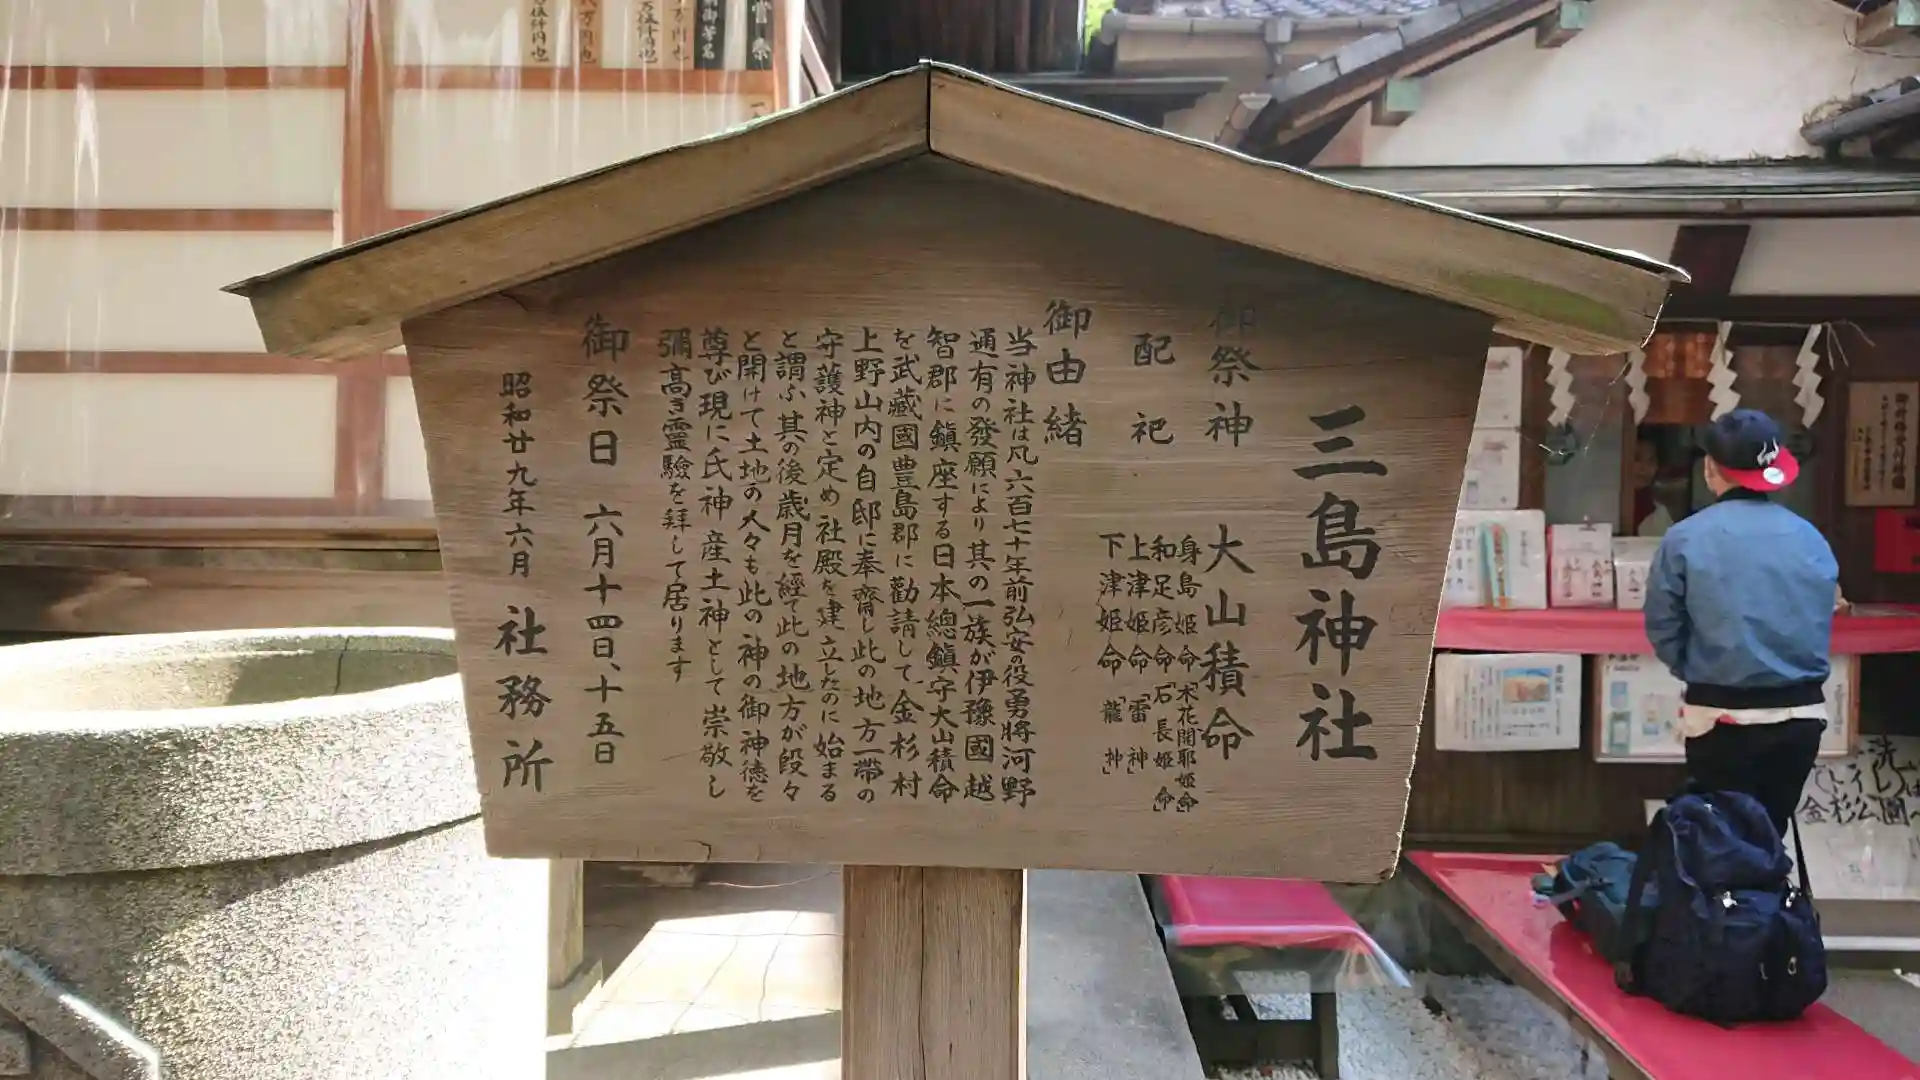 三島神社
御祭神 大山積命
配祀 身島姫命「木花開耶姫命」
和足彦命「石長姫命」
上津姫命「雷神」
下津姫命「龍神」
御由緒
当神社は凡六百七十年前弘安の役勇將河野
通有の發願により其の一族が伊豫國越
智郡に鎮座する日本總鎮守大山積命
を武藏國豊島郡に勸請して金杉村
上野山内の自邸に奉齋し此の地方一帶の
守護神と定め社殿を建立したのに始まる
と謂ふ其の後歳月を經て此の地方が段々
と開けて土地の人々も此の神の御神徳を
尊び現に氏神産土神として崇敬し
彌高き靈驗を拜して居ります
御祭日 六月十四日、十五日
昭和廿九年六月 社務所
金杉公園